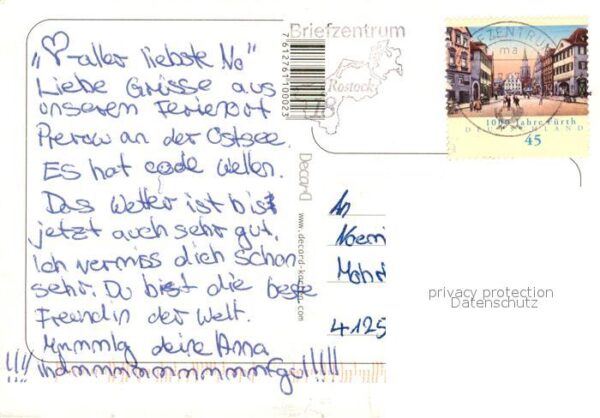 „♡-aller liebste No"
Liebe Grüsse aus
unserem Ferienort
Prerow an der Ostsee.
ES hat coole Wellen.
Das Wetter ist bis
jetzt auch sehr gut.
Ich vermiss dich schon
sehr. Du bist die beste
Freundin der Welt.
deine Anna
Briefzentrum
Rostock
18
7612761100023
DecarD
www.decard-karten.com
BRIEFZENTRUM
1000 Jahre Fürth
DEUTSCHLAND
45
An
Noemi
4125
privacy protection
Datenschutz